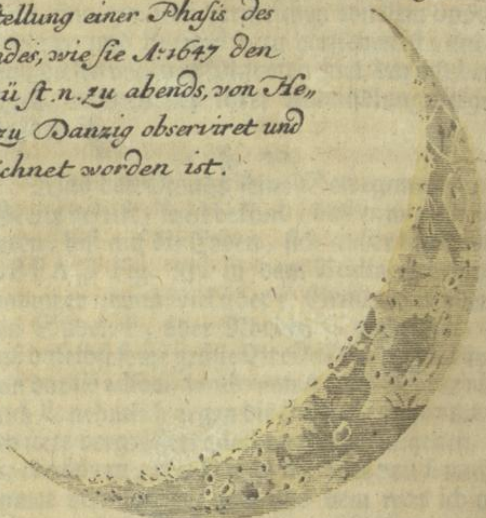 tellung einer Phasis des
ndes, wie sie A: 1647 den
ü st. n. zu abends, von He„
zu Danzig observiret und
ichnet worden ist.